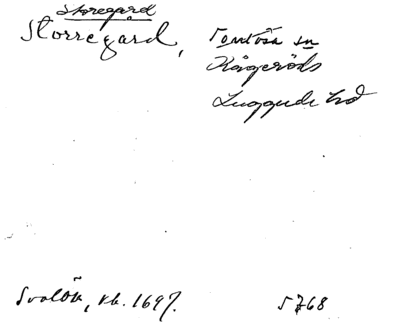 Storegård
Storregård, Tomtösa sn
Kågeröds
Luggude hd
Svalöv, kb. 1697. 5768